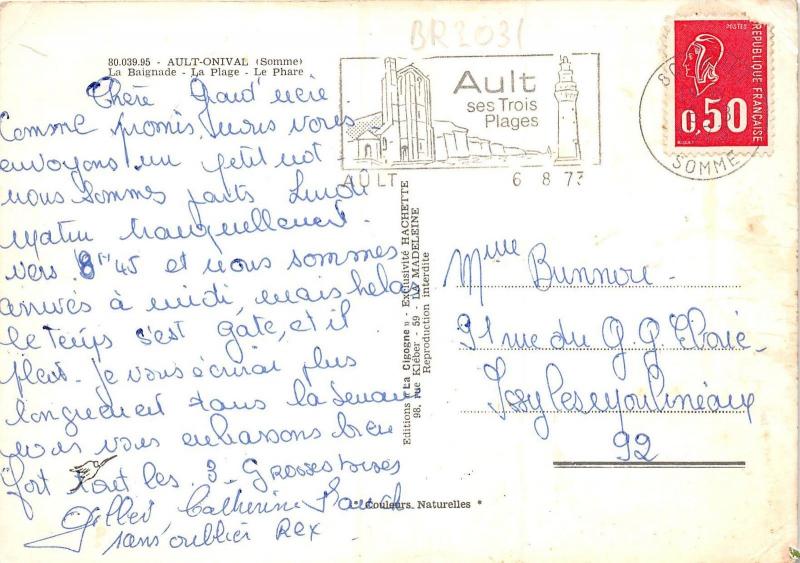 BR2031
80.039.95 - AULT-ONIVAL (Somme)
La Baignade - La Plage - Le Phare
Chère Grand'
Comme promis, nous vous
envoyons un petit mot
nous sommes partis Lundi
matin tranquillement.
vers 8h45 et nous sommes
arrivés à midi, mais hélas
le temps s'est gaté, et il
pleut. Je vous écrirai plus
longuement dans la semaine
nous vous embrassons bien
fort tout les 3. GROSSES BISES
Gilbert Catherine
sans oublier REX
Ault
ses Trois
Plages
AULT 6 8 73
80
SOMME
POSTES
REPUBLIQUE FRANÇAISE
0,50
Editions "La Cigogne" - Exclusivité HACHETTE
98, rue Kléber - 59 - LA MADELEINE
Reproduction interdite
Mme Bunnore.
91 rue du G. G.
Issy les Moulineaux
92
* Couleurs Naturelles *